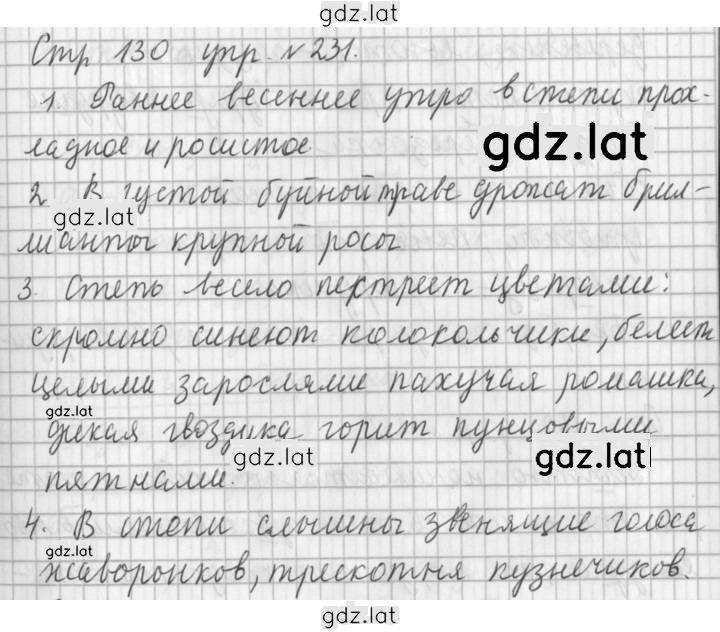 gdz.lat
Стр 130 упр. №231.
1. Раннее весеннее утро в степи прох-
ладное и росистое
gdz.lat
2 В густой буйной траве дрожат брил-
gdz.lat
лианты крупной росы
3. Степь весело пестреет цветами:
скромно синеют колокольчики, белеет
целыми зарослями пахучая ромашка,
gdz.lat
дикая гвоздика горит пунцовыми
gdz.lat
gdz.lat
пятнами.
4. В степи слышны звенящие голоса
gdz.lat
жаворонков, трескотня кузнечиков.
gdz.lat